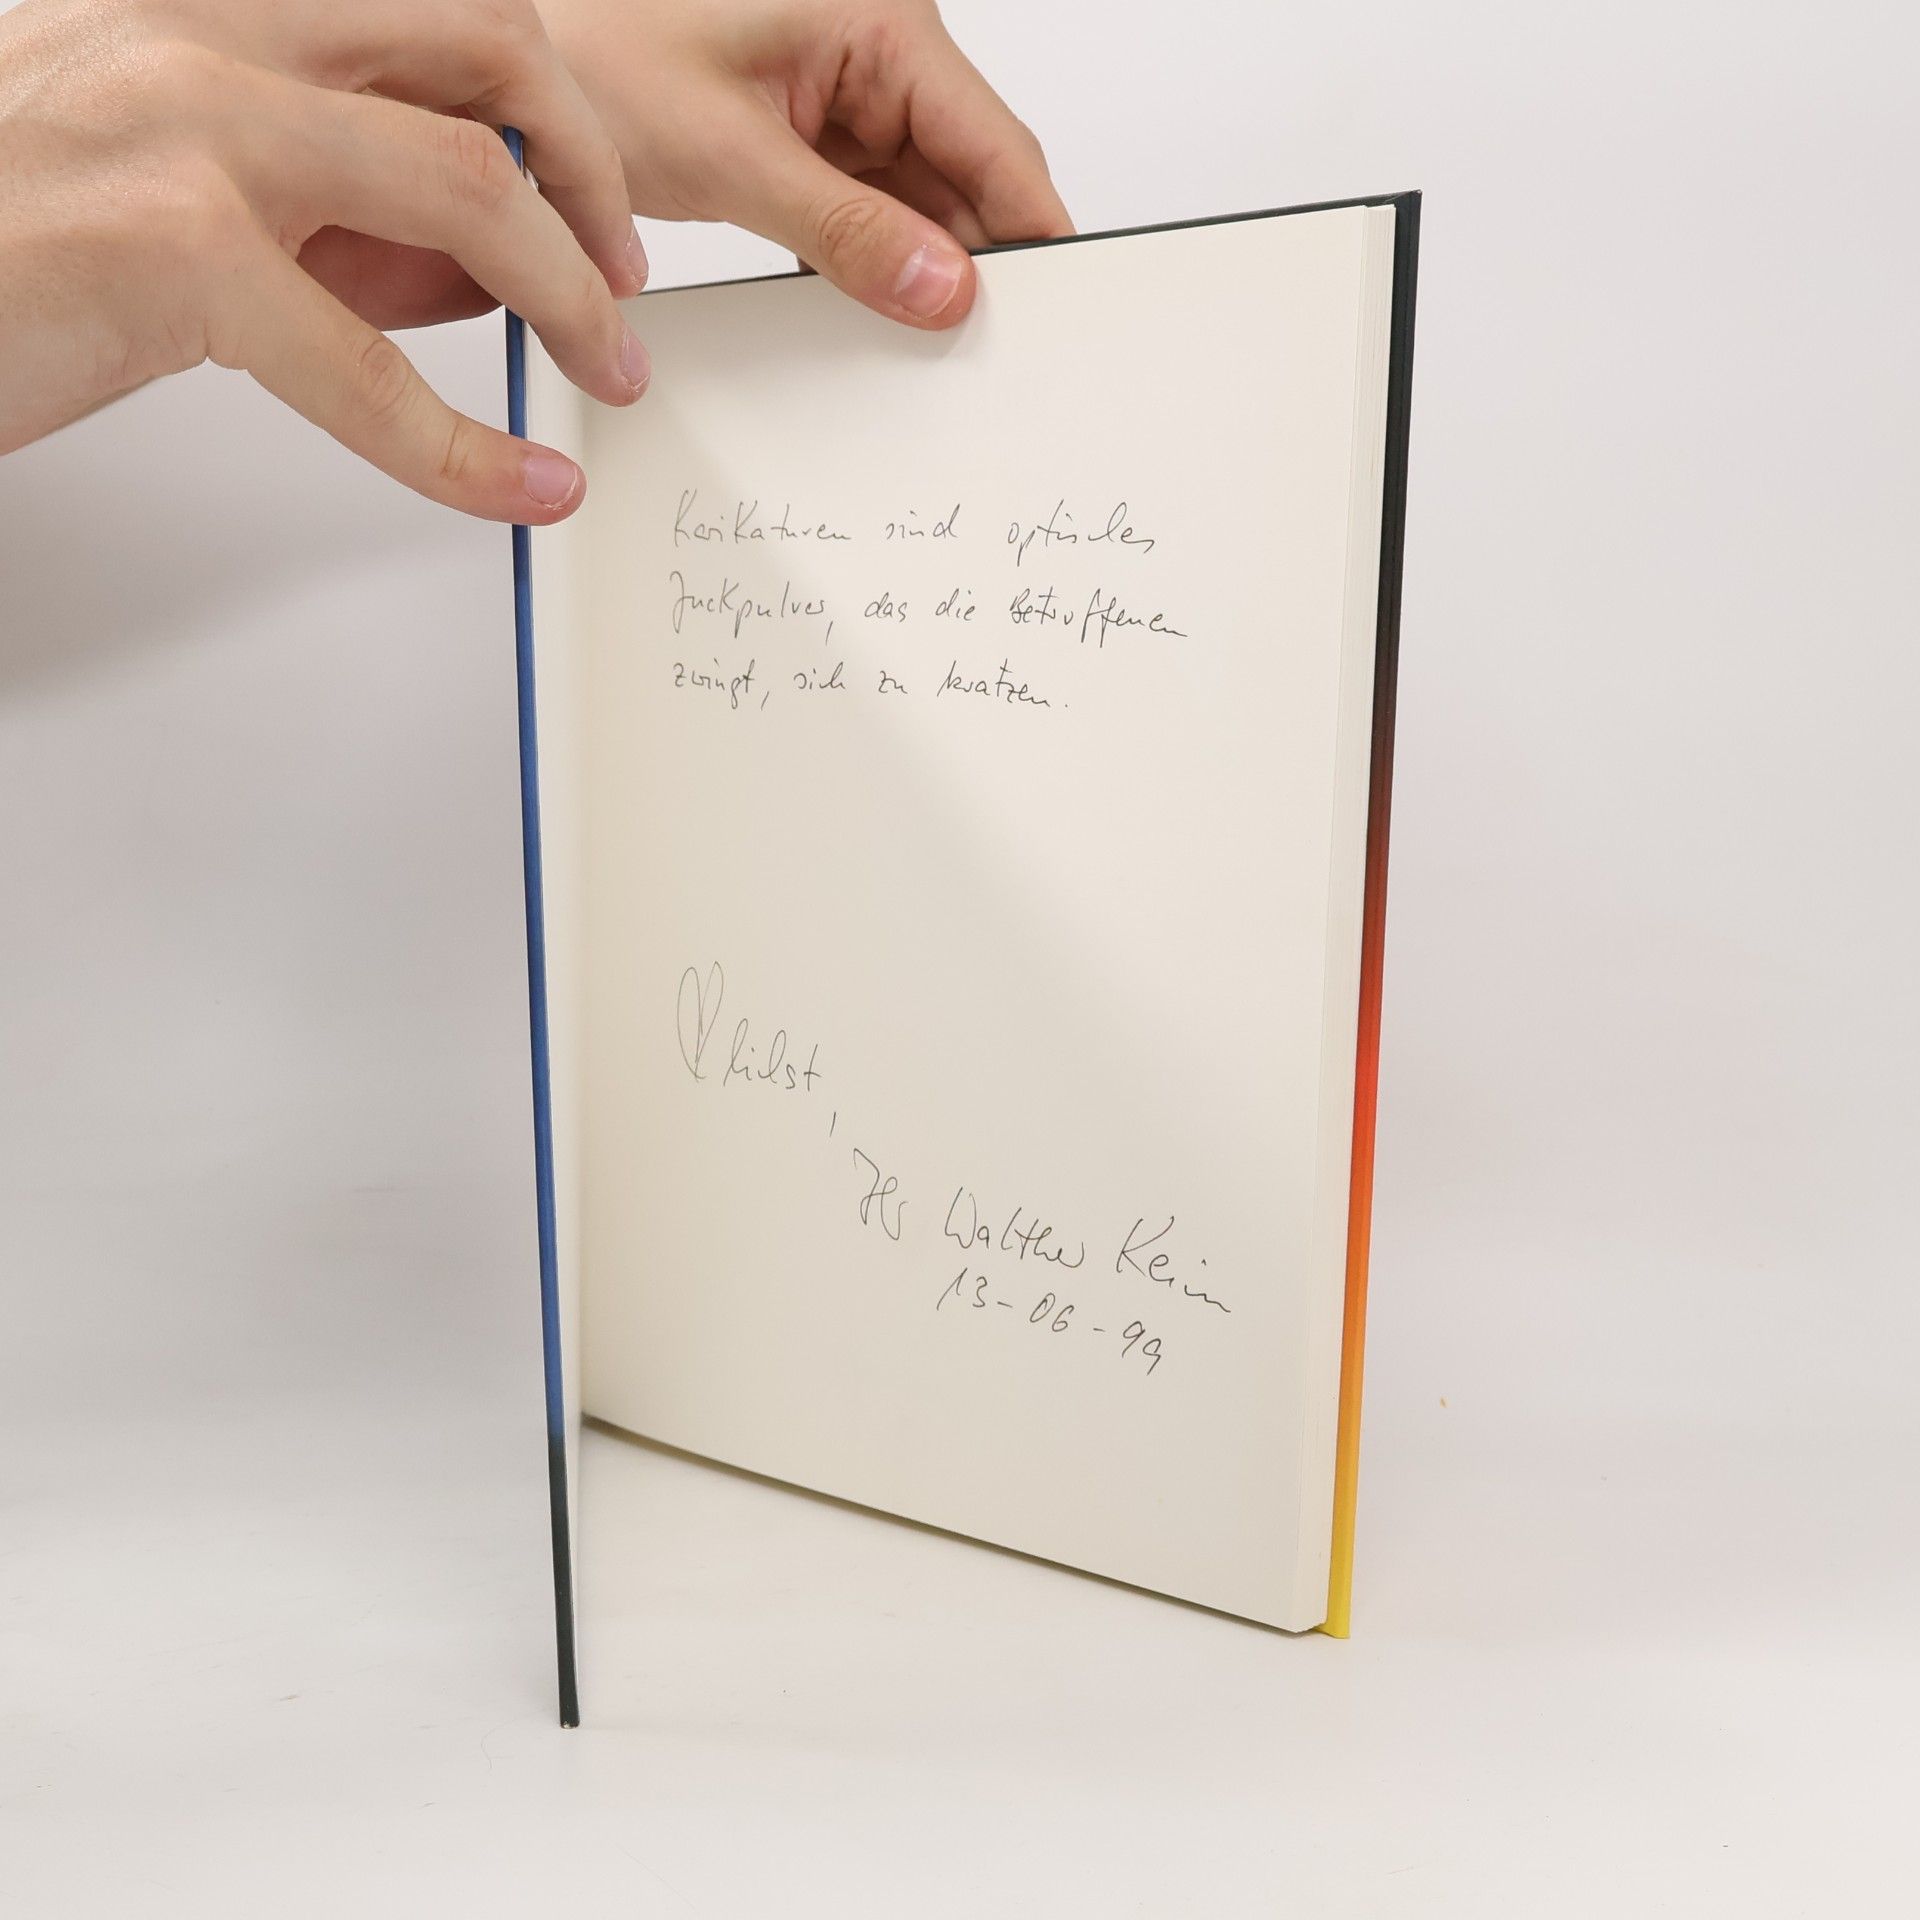 Karikaturen sind optisches
Juckpulver, das die Betroffenen
zwingt, sich zu kratzen.
♡lichst,
Ihr Walther Keim
13-06-99